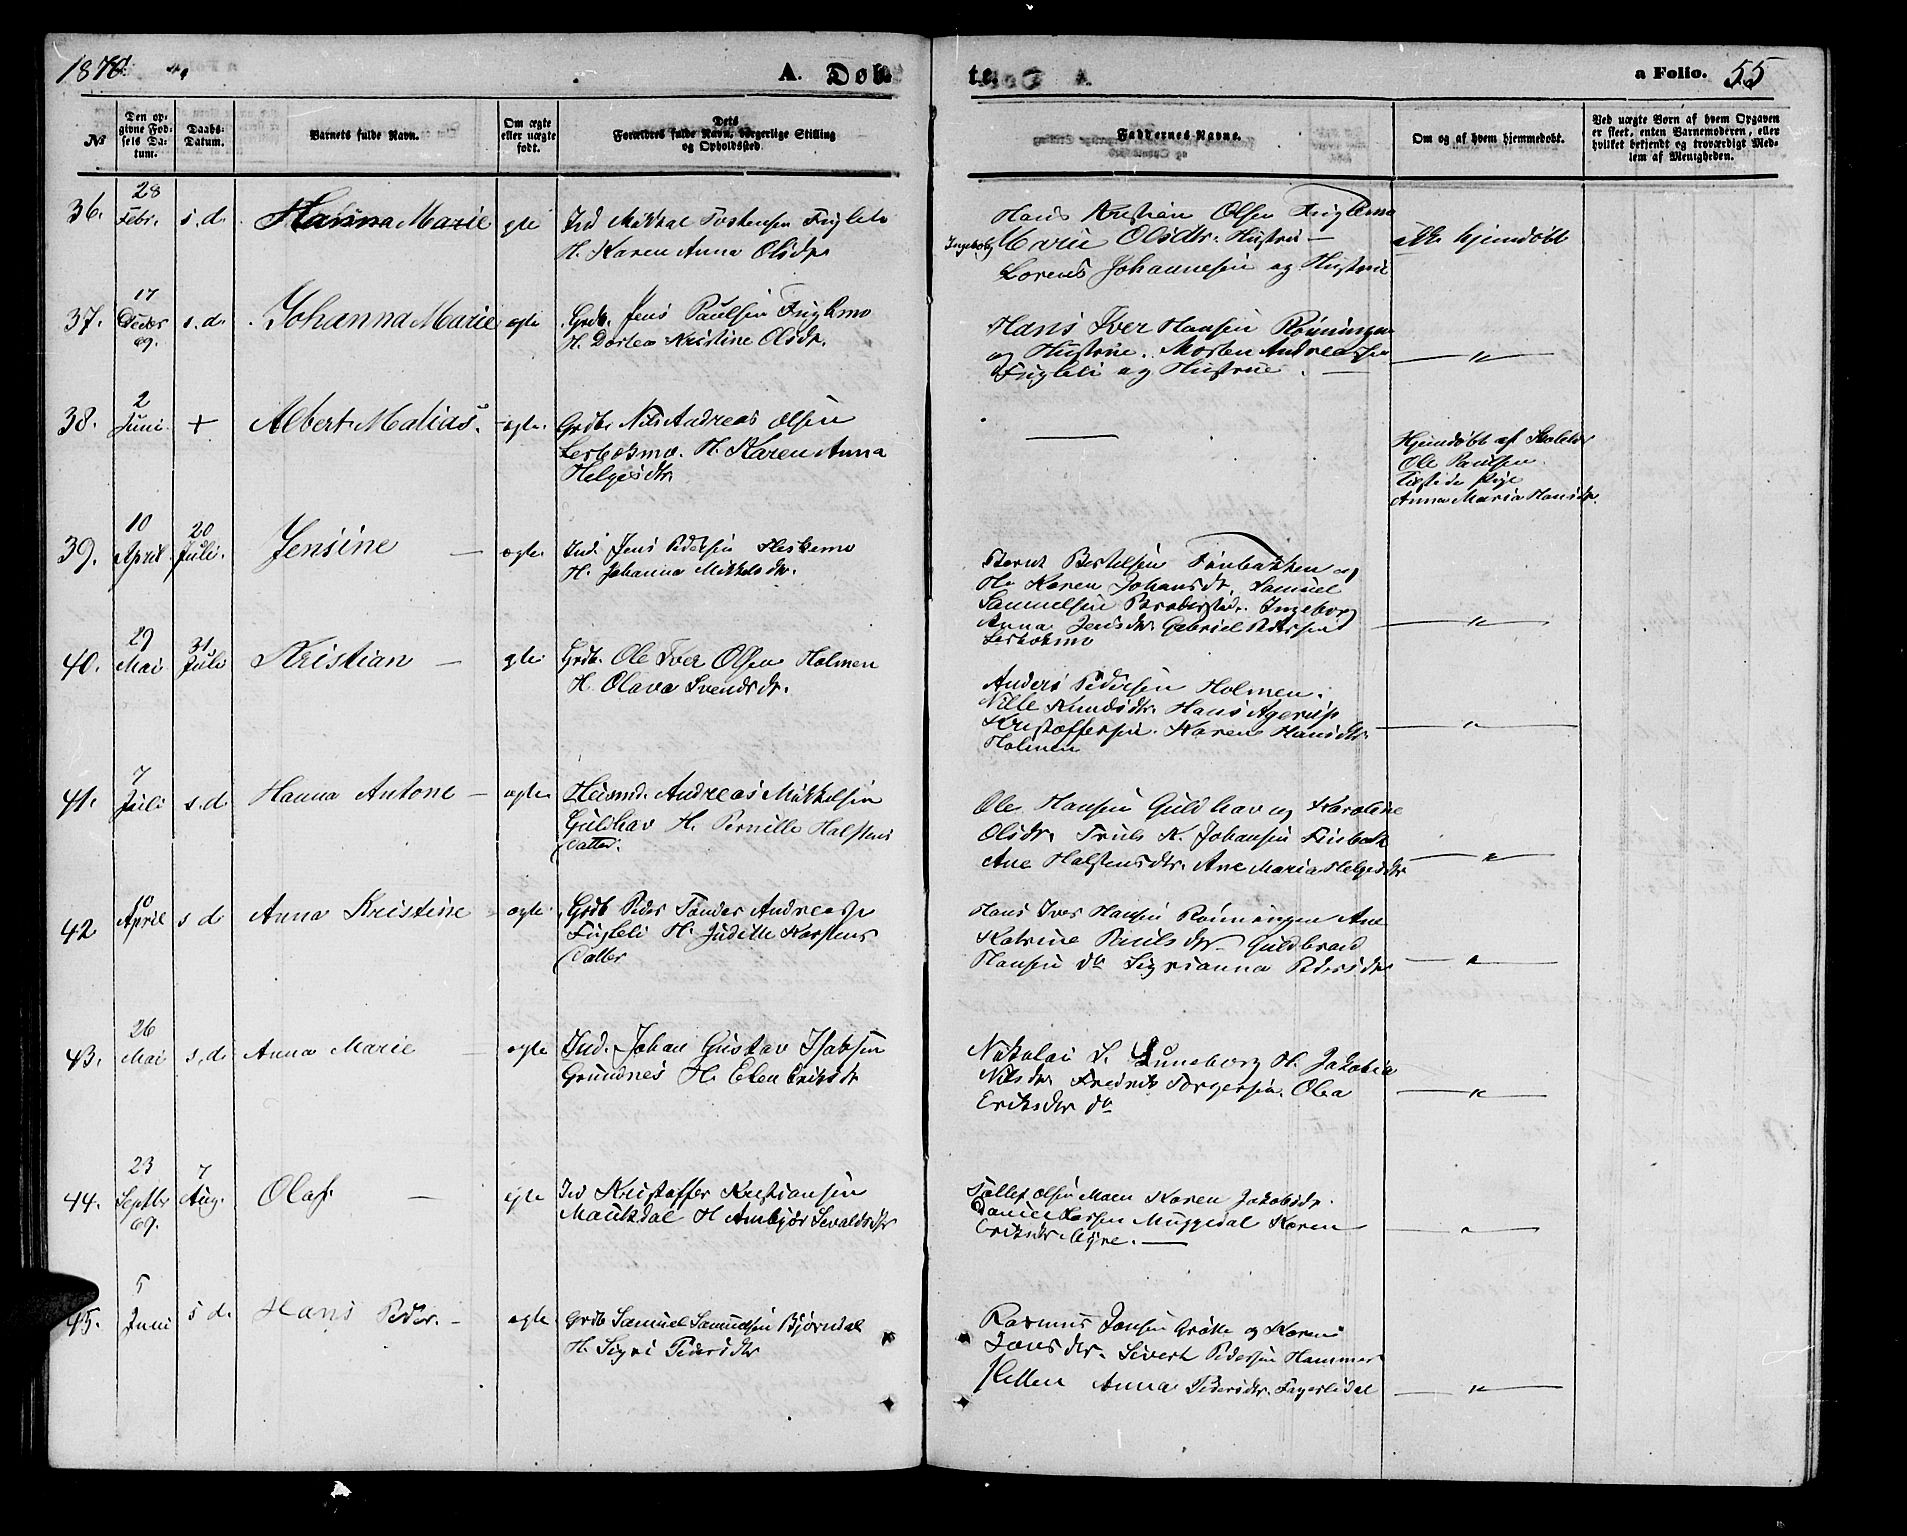 1870.
A. Døb-
te.
a Folio. 55
№
Den op-
givne Fød-
sels Da-
tum.
Daabs-
Datum.
Barnets fulde Navn.
Om ægte
eller uægte
født.
Dets
Forældres fulde Navn, borgerlige Stilling
og Opholdssted.
Faddernes Navne.
Om og af hvem hjemmedøbt.
Ved uægte Børn af hvem Opgaven
er skeet, enten Barnemoderen, eller
hvilket bekjendt og troværdigt Med-
lem af Menigheden.
36.
28
Febr.
s. d.
Hanna Marie
ægte
Ind Mikkal Torstensen Fugleli
H. Karen Anna Olsdr
Hans Kristian Olsen Fuglemo
Ingeborg Marie Olsdtr. Hustru —
Lorents Johannesen og Hustrue
ikke hjemdøbt
37.
17
Decbr
69.
s. d.
Johanna Marie
ægte
Grdb. Jens Paulsen Fuglmo
H. Dortea Kristine Olsdr.
Hans Iver Hansen Rønningen
og Hustrue. Morten Andreassen
Fugleli og Hustrue. —
— " —
38.
2
Juni
+
Albert Matias.
ægte.
Grdb. Nils Andreas Olsen
H. Karen Anna
Helgesdtr
—
Hjemdøbt af
Ole Paulsen.
Pige
Anna Maria Hansdr.
39.
10
April.
20
Juli.
Jensine —
ægte.
Ind. Jens Pedersen
H. Johanna Mikkelsdtr.
Bernt Bertelsen Finbakken og
H. Karen Johansdr. Samuel
Samuelsen Ingeborg
Anna Jensdtr. Gabriel Pedersen
— " —
40.
29
Mai
31
Juli
Kristian —
ægte
Grdb. Ole Iver Olsen Holmen
H. Olava Svendsdr.
Anders Pedersen Holmen.
Nille Knudsdtr. Hans Agerup
Kristoffersen. Karen Hansdtr.
Holmen
— " —
41.
7
Juli
s. d
Hanna Antone —
ægte
Husmd. Andreas Mikkelsen
Guldhav H. Pernille Halstens
datter.
Ole Hansen Guldhav og Karoline
Olsdr. Truls K. Johansen Finbak
Ane Halstensdtr. Ane Maria Helgesdtr
— " —
42
10
April
s d
Anna Kristine
ægte
Grdb Peder Tandar Andreassen
Fugleli H. Judithe Karstens
datter
Hans Iver Hansen Rønningen Ane
Katrine Paulsdtr. Guldbrand
Hansen do Sigrianna Pedersdtr
— " —
43.
26
Mai
s. d.
Anna Marie —
ægte
Ind. Johan Gustav Isaksen
Grundnes H. Elen Eriksdr
Nikolai S. Luneborg H. Jakobia
Nilsdtr Fredrik Torgersen. Olea
Eriksdtr do
— " —
44.
23
Septbr
69.
7
Aug.
Olaf. —
ægte
Ind Kristoffer Kristiansen
Maukdal H Ambjør Sevaldsdtr
Tollef Olsen Moen Karen Jakobsdr.
Daniel Larsen Muggedal Karen
Eriksdtr Myre. —
— " —
45.
5
Juni
s d.
Hans Peder. —
ægte
Grdb Samuel Samuelsen Bjørndal
H. Sigri Pedersdtr
Rasmus Jonsen Grøtte og Karen
Jonsdtr. Sivert Pedersen Hammer
Anna Pedersdtr. Fagerlidal
— " —